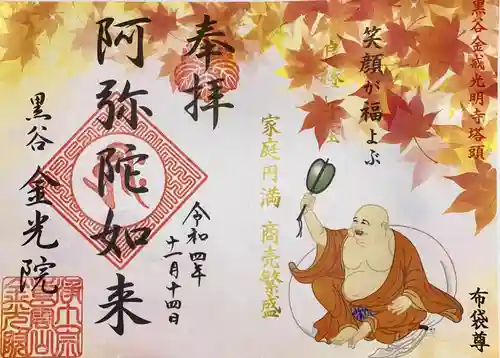 黒谷金戒光明寺塔頭
笑顔が福よぶ
家庭円満 商売繁盛
布袋尊
奉拝
阿弥陀如来
令和四年
十一月十四日
黒谷 金光院
浄土宗
紫雲山
金光院